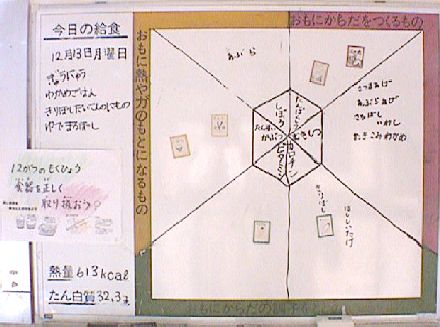 今日の給食
12月13日月曜日
ぎゅうにゅう
わかめごはん
きりぼしだいこんのにもの
ゆでまるぼし
12がつのもくひょう
食器を正しく
取り扱おう
熱量613kcal
たん白質32.3g
おもに熱や力のもとになるもの
おもにからだをつくるもの
もにからだの調子
あぶら
さつまあげ
あぶらあげ
まるぼし
いわし
たきこみわかめ
しぼう
たんぱくしつ
むきしつ
ビタミン
ほししいたけ